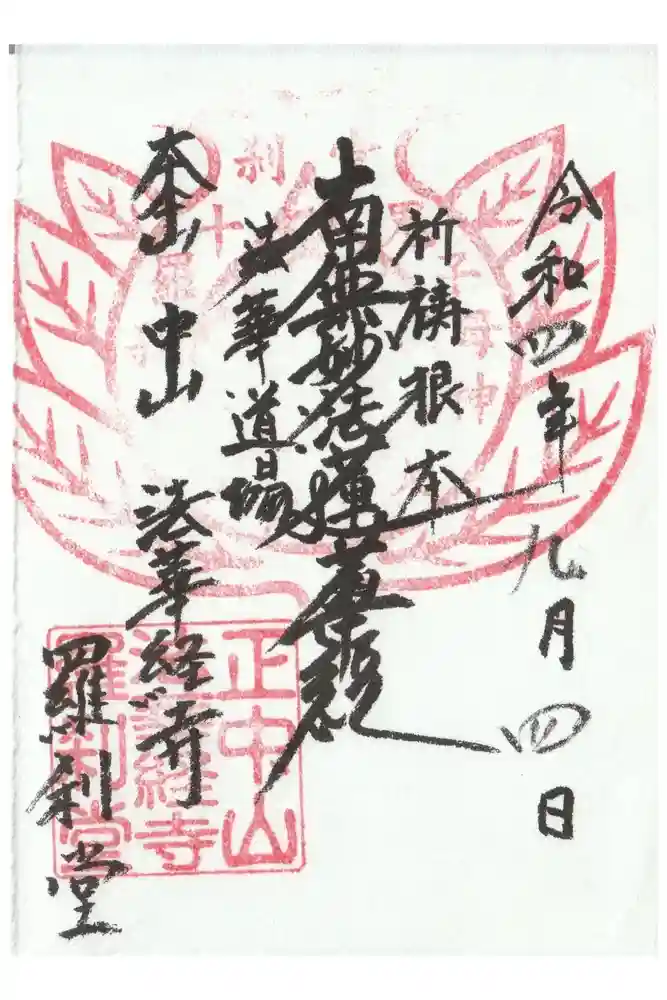 令和四年九月四日
祈祷根本
南無妙法蓮華経
法華道場
本山
中山
法華経寺
羅刹堂
正中山
法華経寺
羅刹堂